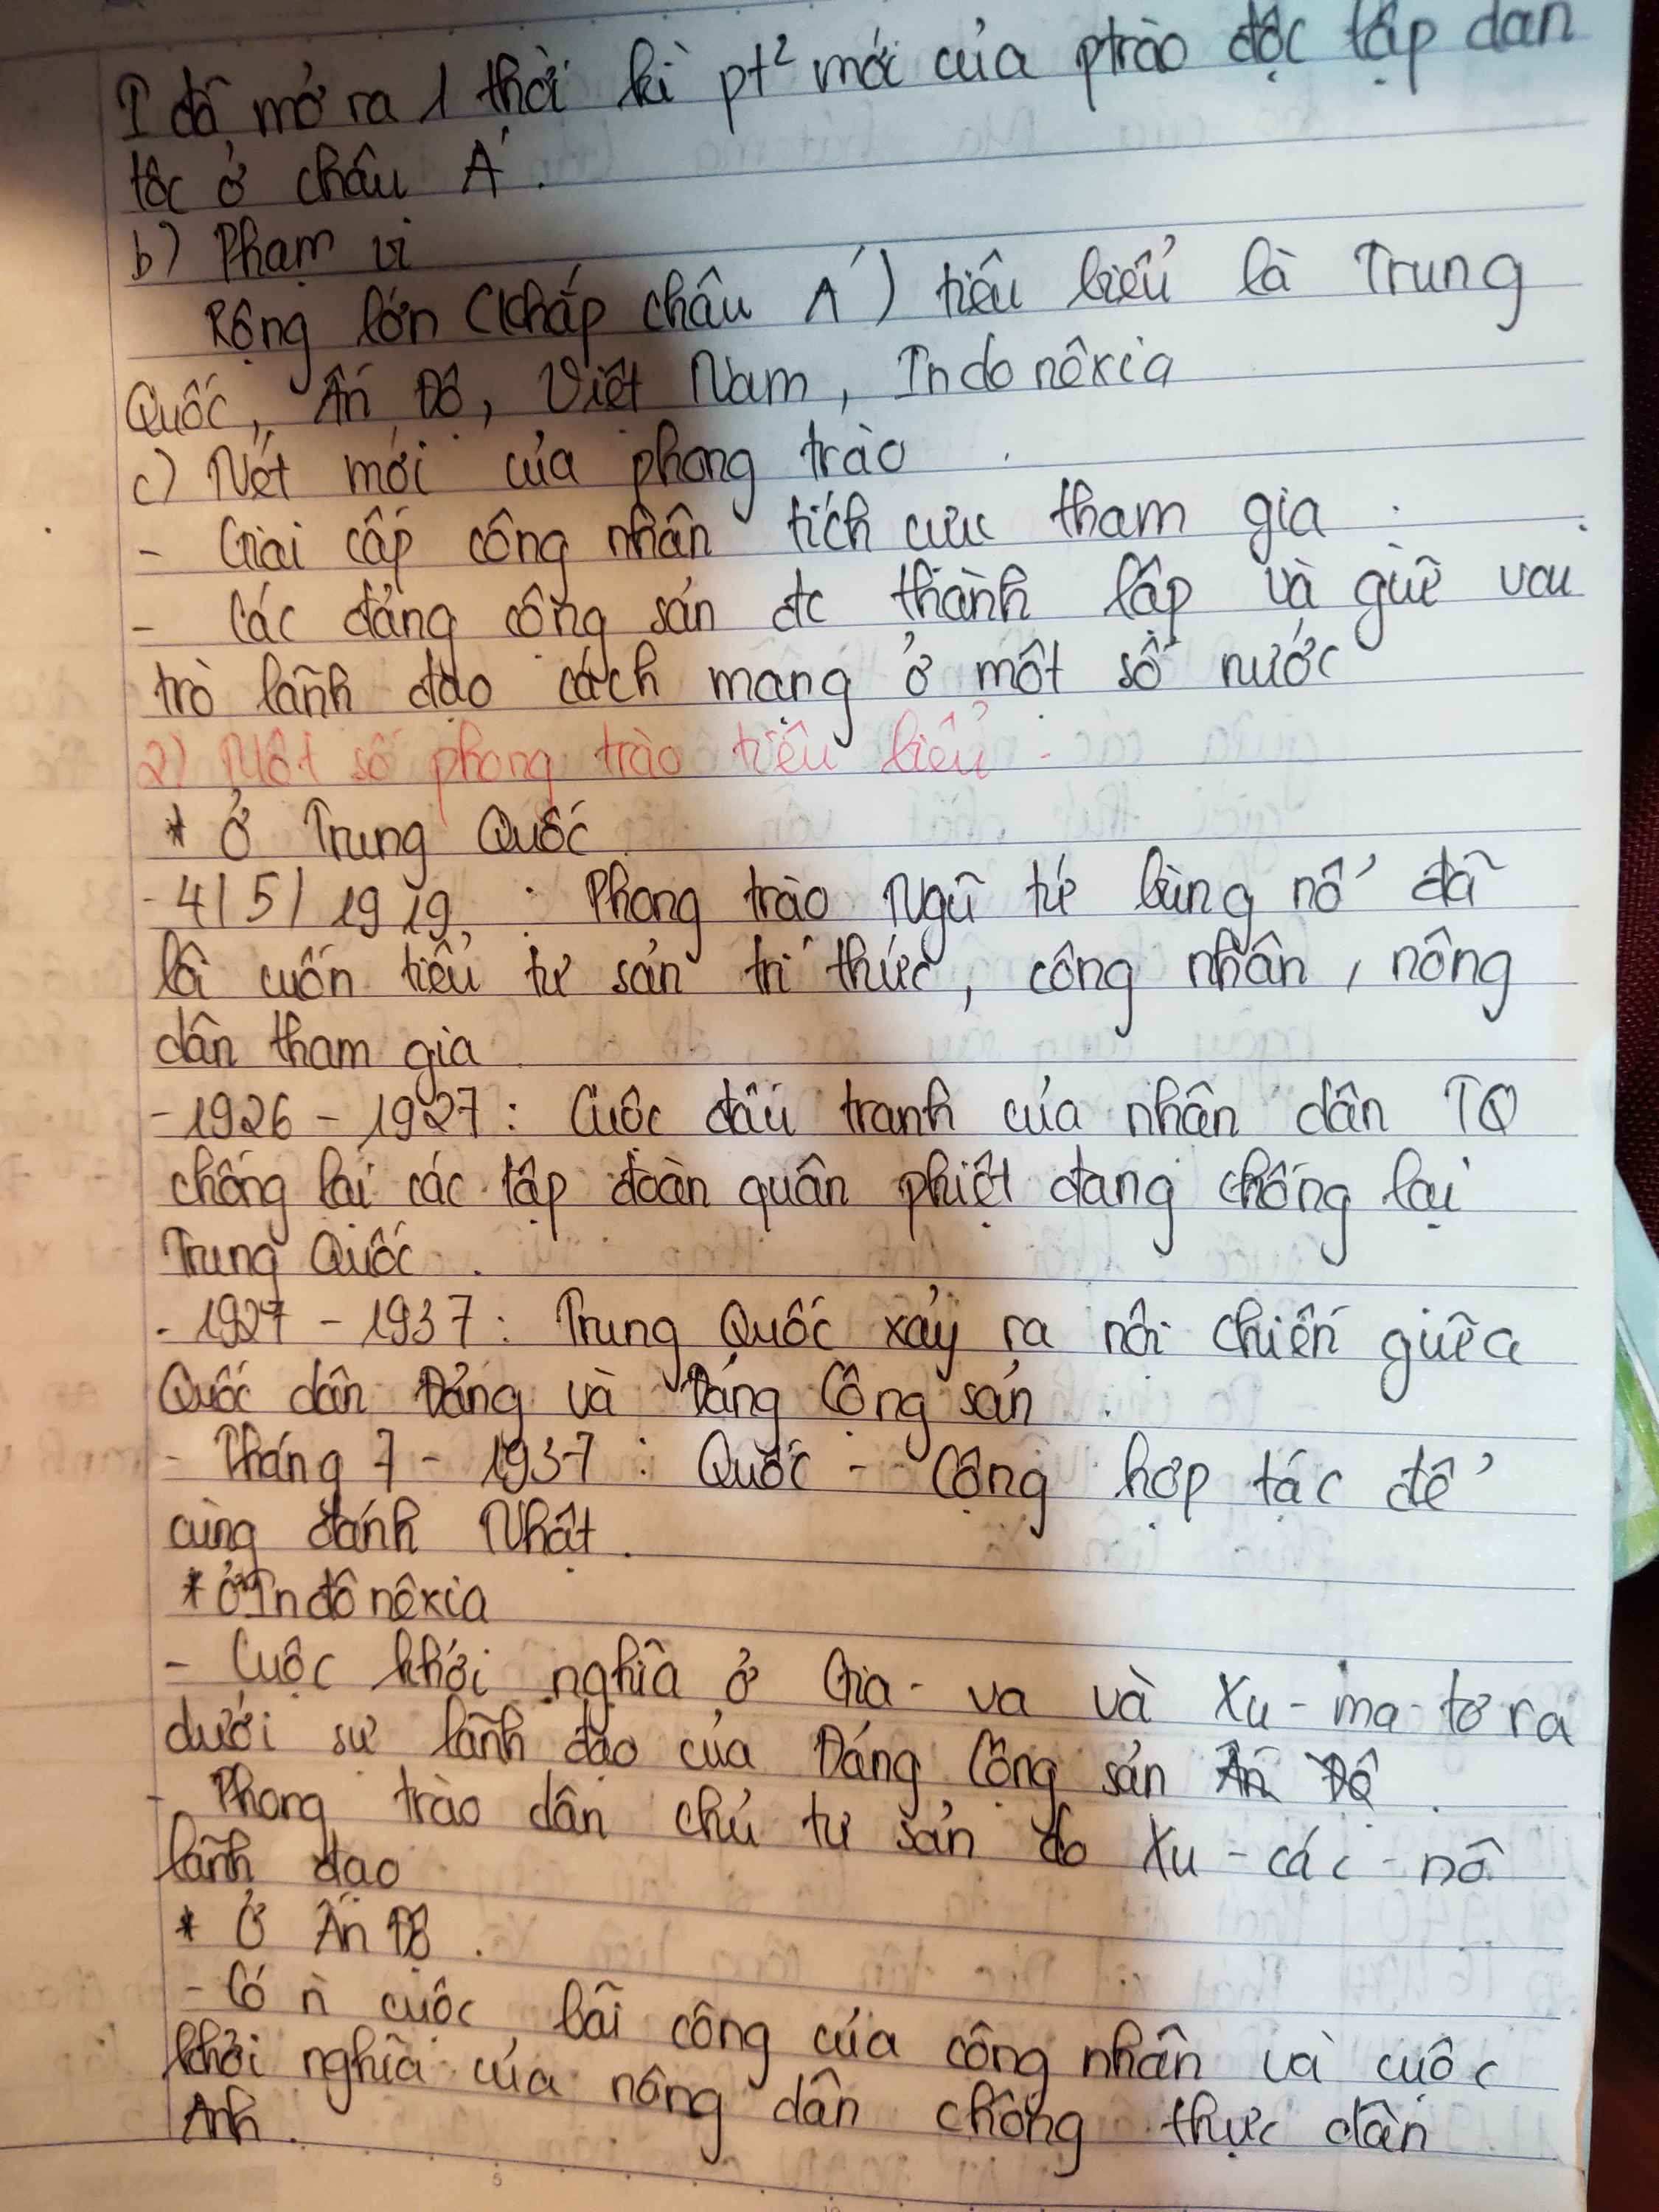 I đã mở ra 1 thời kì pt² mới của ptrào độc lập dân
tộc ở châu Á.
b) Phạm vi
Rộng lớn (khắp châu Á) tiêu biểu là Trung
Quốc, Ấn Độ, Việt Nam, Indonêxia
c) Nét mới của phong trào
- Giai cấp công nhân tích cực tham gia.
- Các đảng cộng sản đc thành lập và giữ vai
trò lãnh đạo cách mạng ở một số nước
2) Một số phong trào tiêu biểu.
* Ở Trung Quốc
- 4/5/1919 : Phong trào Ngũ tứ bùng nổ đã
lôi cuốn tiểu tư sản trí thức, công nhân, nông
dân tham gia
- 1926 - 1927 : Cuộc đấu tranh của nhân dân TQ
chống lại các tập đoàn quân phiệt đang chống lại
Trung Quốc.
- 1927 - 1937 : Trung Quốc xảy ra nội chiến giữa
Quốc dân Đảng và Đảng Cộng sản.
- Tháng 7 - 1937 : Quốc - Cộng hợp tác để
cùng đánh Nhật.
* Ở Inđônêxia
- Cuộc khởi nghĩa ở Gia - va và Xu - ma - tơ ra
dưới sự lãnh đạo của Đảng Cộng sản Ấn Độ.
- Phong trào dân chủ tư sản do Xu - các - nô
lãnh đạo
* Ở Ấn Độ.
- Có n̄ cuộc bãi công của công nhân và cuộc
khởi nghĩa của nông dân chống thực dân
Anh.